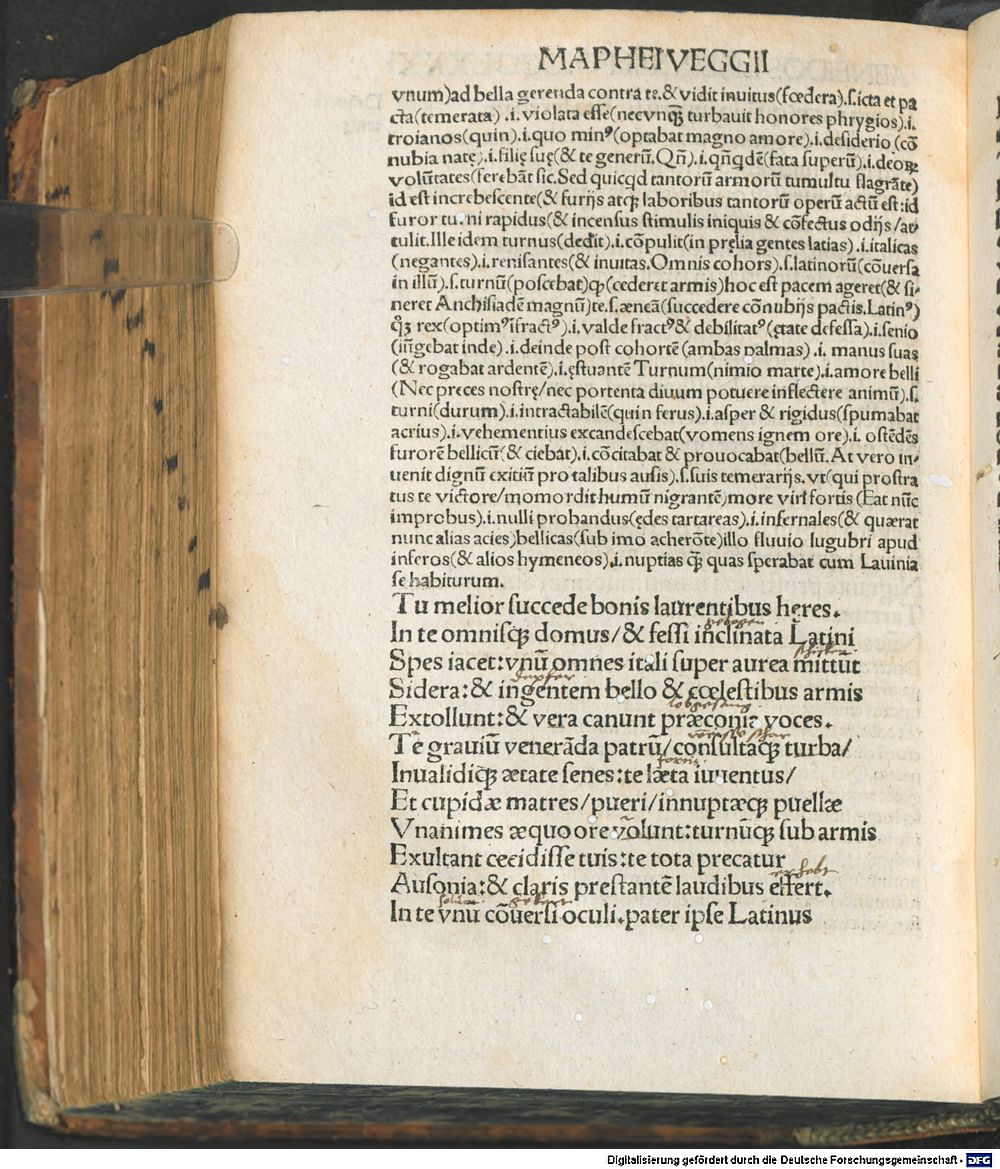 MAPHEI VEGGII
vnum)ad bella gerenda contra te.& vidit inuitus(fœdera).ſ.icta et pa
cta(temerata) .i.violata eſſe(necvnꝗ̃ turbauit honores phrygios).i.
troianos(quin).i.quo minꝰ(optabat magno amore).i.deſiderio (cō
nubia natę).i.filię ſuę(& te generū. Qñ).i.qñqdē(fata ſuperū).i.deoꝝ
volūtates(ferebāt ſic.Sed quicqd tantorū armorū tumultu flagrāte)
id eſt increbeſcente(& furijs atqꝫ laboribus tantorū operū actū eſt:id
furor turni rapidus(& incenſus ſtimulis iniquis & cōfectus odijs/at/
tulit.Ille idem turnus(dedit).i.cōpulit(in pręlia gentes latias) .i.italicas
(negantes).i.reniſantes(& inuitas.Omnis cohors).ſ.latinorū(cōuerſa
in illū).ſ.turnū(poſcebat)ꝙ(cederet armis)hoc eſt pacem ageret(& ſi/
neret Anchiſiadē magnū)te.ſ.æneā(ſuccedere cōnubijs pactis.Latinꝰ)
qͦꝫ rex(optimꝰ īfractꝰ).i.valde fractꝰ & debilitatꝰ(ętate defeſſa).i.ſenio
(iūgebat inde).i.deinde poſt cohortē(ambas palmas) .i. manus ſuas
(& rogabat ardentē).i.ęſtuantē Turnum(nimio marte).i.amore belli
(Nec preces noſtrę/nec portenta diuum potuere inflectere animū).ſ.
turni(durum).i.intractabilē(quin ferus).i.aſper & rigidus(ſpumabat
acrius).i.vehementius excandeſcebat(vomens ignem ore).i. oſtēdēs
furorē bellicū(& ciebat).i.cōcitabat & prouocabat(bellū.At vero in/
uenit dignū exitiū pro talibus auſis).ſ.ſuis temerarijs.vt(qui proſtra
tus te victore/momordit humū nigrantē)more viri fortis (Eat nūc
improbus).i.nulli probandus(ędes tartareas).i.infernales(& quærat
nunc alias acies)bellicas(ſub imo acherōte)illo fluuio lugubri apud
inferos(& alios hymeneos).i.nuptias ꝗ̃ quas ſperabat cum Lauinia
ſe habiturum.
Tu melior ſuccede bonis laurentibus heres.
In te omniſqꝫ domus/& feſſi inclinata Latini
Spes iacet:vnū omnes itali ſuper aurea mittūt
Sidera:& ingentem bello & cœleſtibus armis
lobgeſang
Extollunt:& vera canunt præconia voces.
Tē grauiū venerāda patrū/conſultaqꝫ turba/
Inualidiqꝫ ætate ſenes:te læta iuuentus/
Et cupidæ matres/pueri/innuptæqꝫ puellæ
Vnanimes æquo ore volunt:turnūqꝫ ſub armis
Exultant cecidiſſe tuis:te tota precatur
erhebt
Auſonia:& claris preſtantē laudibus effert.
In te vnū cōuerſi oculi.pater ipſe Latinus
Digitalisierung gefördert durch die Deutsche Forschungsgemeinschaft - DFG